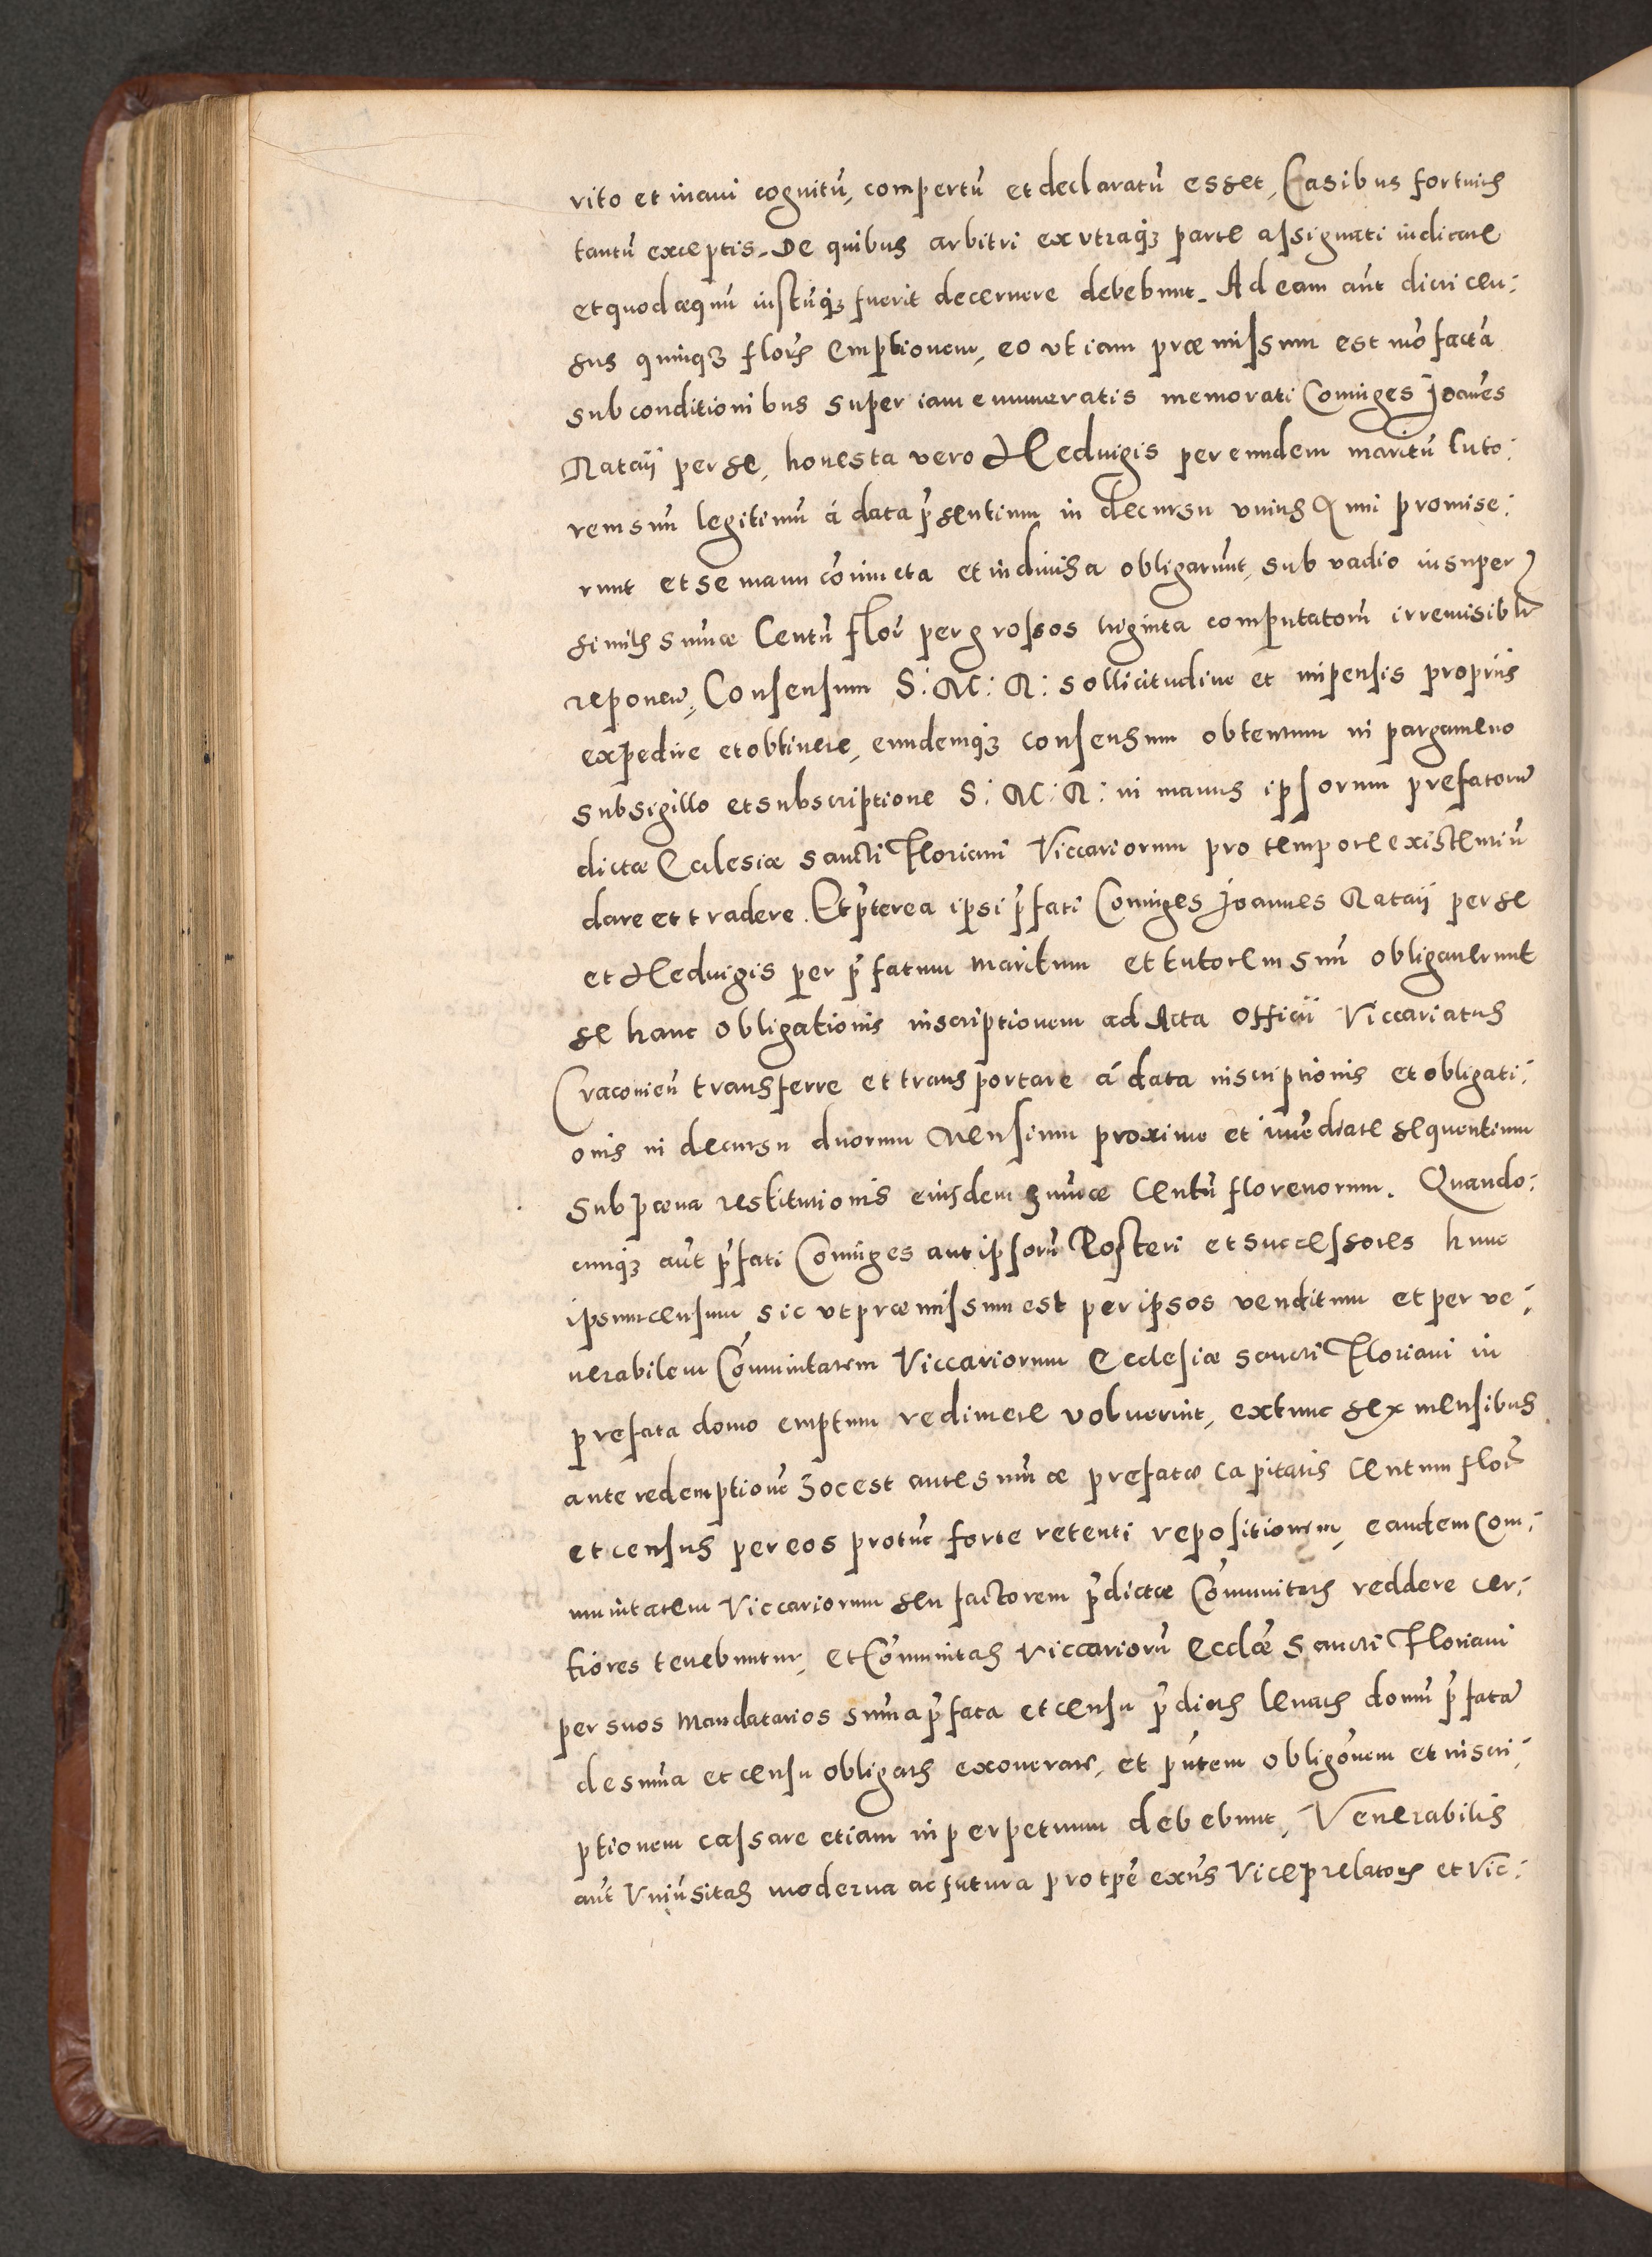 rito et in aui cognitū, compertū et declaratū esset, Casibus fortuitis
tantū exceptis. De quibus arbitri ex vtraq̃ parte assignati iudicare
et quod æquū iustūq̃ fuerit decernere debebunt. Ad eam aūt dicti cen:
sus quinq̃ floris emptionem, eo vt iam præmissum est mō factā
sub conditionibus superiam enumeratis memorati Coniuges Joañes
Rataij per se, honesta vero Heduigis per eundem maritū tuto:
rem suū legitimū á data p̃sentium in decursu vnius Anni promise:
runt et se manu cōniucta et indiuisa obligarūnt, sub vadio insuper
similis sūmæ Centū flor̄ per grossos triginta computatorū irremisiblr
reponen̄, Consensum S: M: R: sollicitudine et impensis proprijs
expedire et obtinere, eundemq̃ consensum obtentum in pargameno
sub sigillo et subscriptione S: M: R: in manus ipsorum prefatorū
dictæ Ecclesiæ sancti Floriani Viccariorum pro tempore existentiū
dare et tradere. Et p̃terea ipsi p̃fati Coniuges Joannes Rataij per se
et Heduigis per p̃fatum maritum et tutorem suū obligauerunt
se hanc obligationis inscriptionem ad Acta Officij Viccariatus
Cracouien̄ transferre et transportare á data inscriptionis et obligati:
onis in decursu duorum Mensium proxime et īmediate sequentium
sub pœna restitutionis eiusdem summæ Centū florenorum. Quando:
cunq̃ aūt p̃fati Coniuges aut ipsorū Posteri et successores hunc
ipsum censum sic vt præmissum est per ipsos venditum et per ve:
nerabilem Cōmunitatem Viccariorum Ecclesiæ sancti Floriani in
prefata domo emptum redimere voluerint, extunc sex mensibus
ante redemptionē hoc est ante sūmæ prefatæ capitalis Centum flor̄
et census per eos protūc forte retenti repositionem, eandem Com:
munitatem Viccariorum seu factorem p̃dictæ Cōmunitatis reddere cer:
tiores tenebuntur, et Cōmunitas Viccariorū Eccl̃æ Sancti Floriani
per suos Mandatarios sūma p̃fata et censu p̃dictis leuatis domū p̃fatā
de sūma et censu obligatis exonerare, et p̃ntem obligōnem et inscri:
ptionem cassare etiam in perpetuum debebunt, Venerabilis
aūt Vniūsitas moderna ac futura pro tp̃e exn̄s Viceprelatoris et Vic: